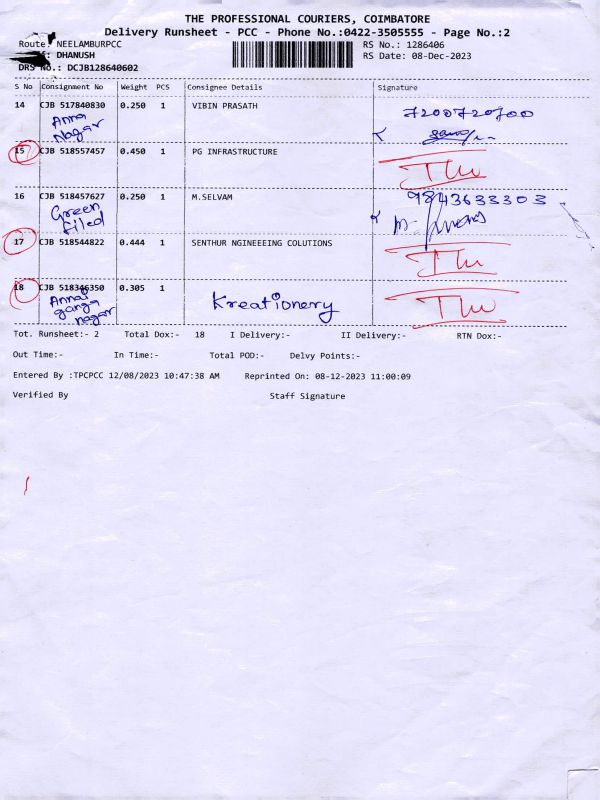 THE PROFESSIONAL COURIERS, COIMBATORE
Delivery Runsheet - PCC - Phone No.:0422-3505555 - Page No.:2
Route: NEELAMBURPCC
RS No.: 1286406
: DHANUSH
RS Date: 08-Dec-2023
DRS No.: DCJB128640602
S No Consignment No Weight PCS Consignee Details Signature
14 CJB 517840830 0.250 1 VIBIN PRASATH
7200720700
Anna
Nagar
15 CJB 518557457 0.450 1 PG INFRASTRUCTURE
16 CJB 518457627 0.250 1 M.SELVAM 9843633303
Green
filed
17 CJB 518544822 0.444 1 SENTHUR NGINEEEING COLUTIONS
18 CJB 518346350 0.305 1 Kreationery
Annai
ganga
nagar
Tot. Runsheet:- 2 Total Dox:- 18 I Delivery:- II Delivery:- RTN Dox:-
Out Time:- In Time:- Total POD:- Delvy Points:-
Entered By :TPCPCC 12/08/2023 10:47:38 AM Reprinted On: 08-12-2023 11:00:09
Verified By Staff Signature